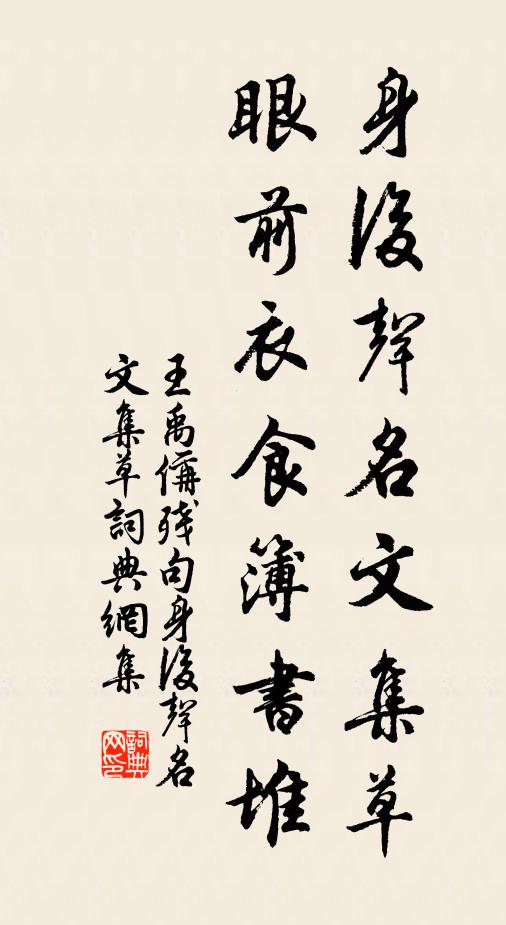 身後聲名文集草
眼前衣食簿書堆
王禹偁殘句身後聲名
文集草詞典網集
詞典網印